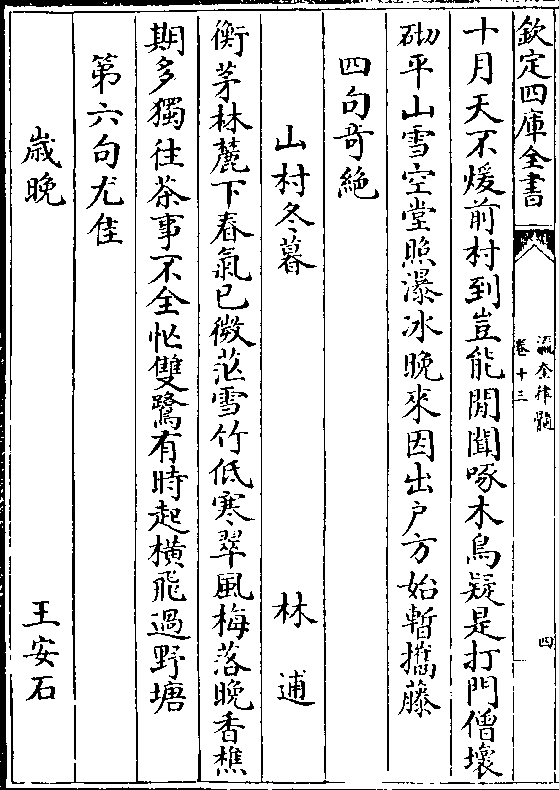 欽定四庫全書
瀛奎律髓
卷十三
四
十月天不煖前村到豈能閒聞啄木鳥疑是打門僧壞
砌平山雪空堂照瀑冰晩來因出户方始暫攜藤
四句竒絶
山村冬暮 林逋
衡茅林麓下春氣已微茫雪竹低寒翠風梅落晩香樵
期多獨往茶事不全忙雙鷺有時起橫飛過野塘
第六句尤佳
歲晩 王安石